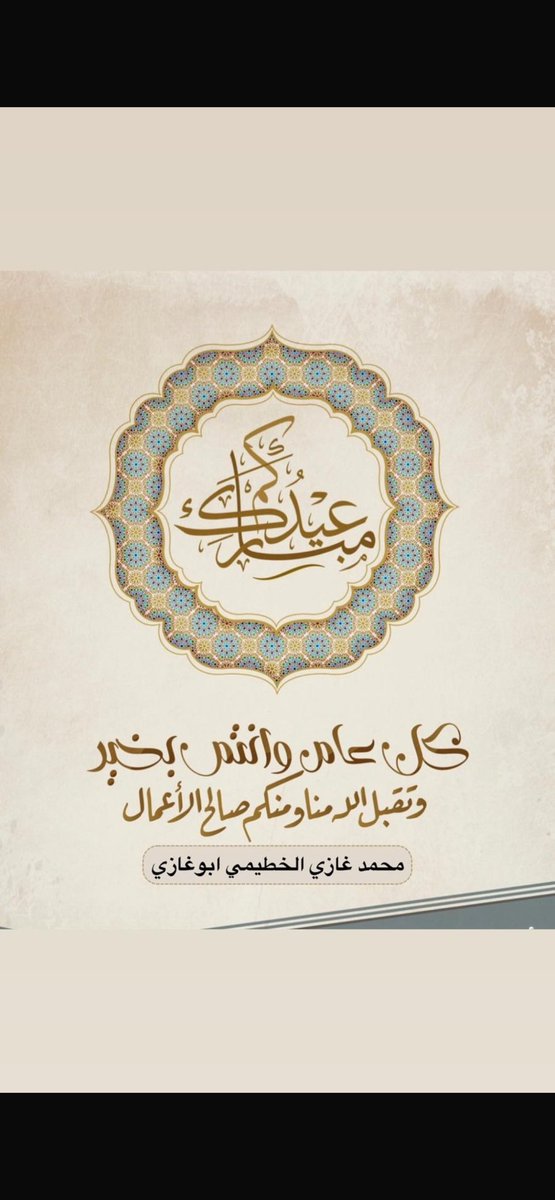 عيدكم مبارك
كل عام وانتم بخير
وتقبل الله منا ومنكم صالح الأعمال
محمد غازي الخطيمي ابوغازي